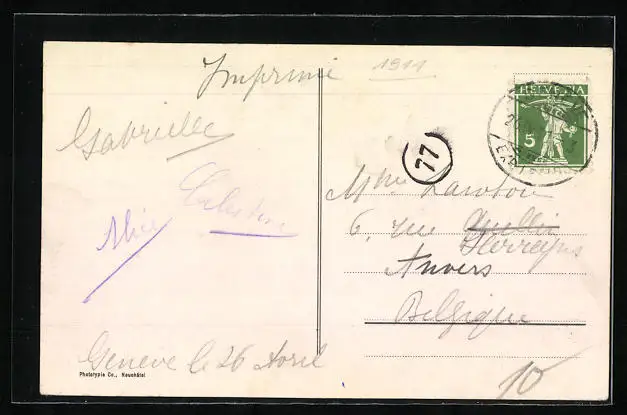 Imprimé
1911
Gabrielle
Celestine
Alice
Genève le 26 Avril
Phototypie Co., Neuchâtel
HELVETIA
5
77
Mme
6, rue
Anvers
Belgique
10